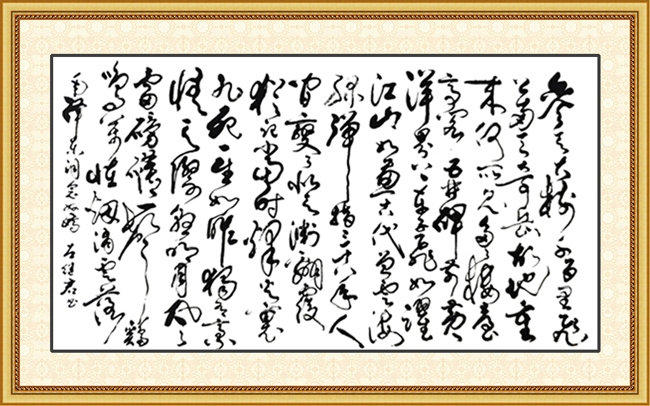 参天大树千百里飞
上南天奇岳故地重
来何所见多了楼台
亭阁五井碑前黄
洋界上车子飞如跃
江山如画古代曾云海
绿弹指三十八年人
间变了似天渊翻覆
犹记当时烽火里
九死一生如昨独有豪
情天际悬明月风
雷磅礴一声鸡
唱万怪烟消云落
毛泽东词念奴娇 书